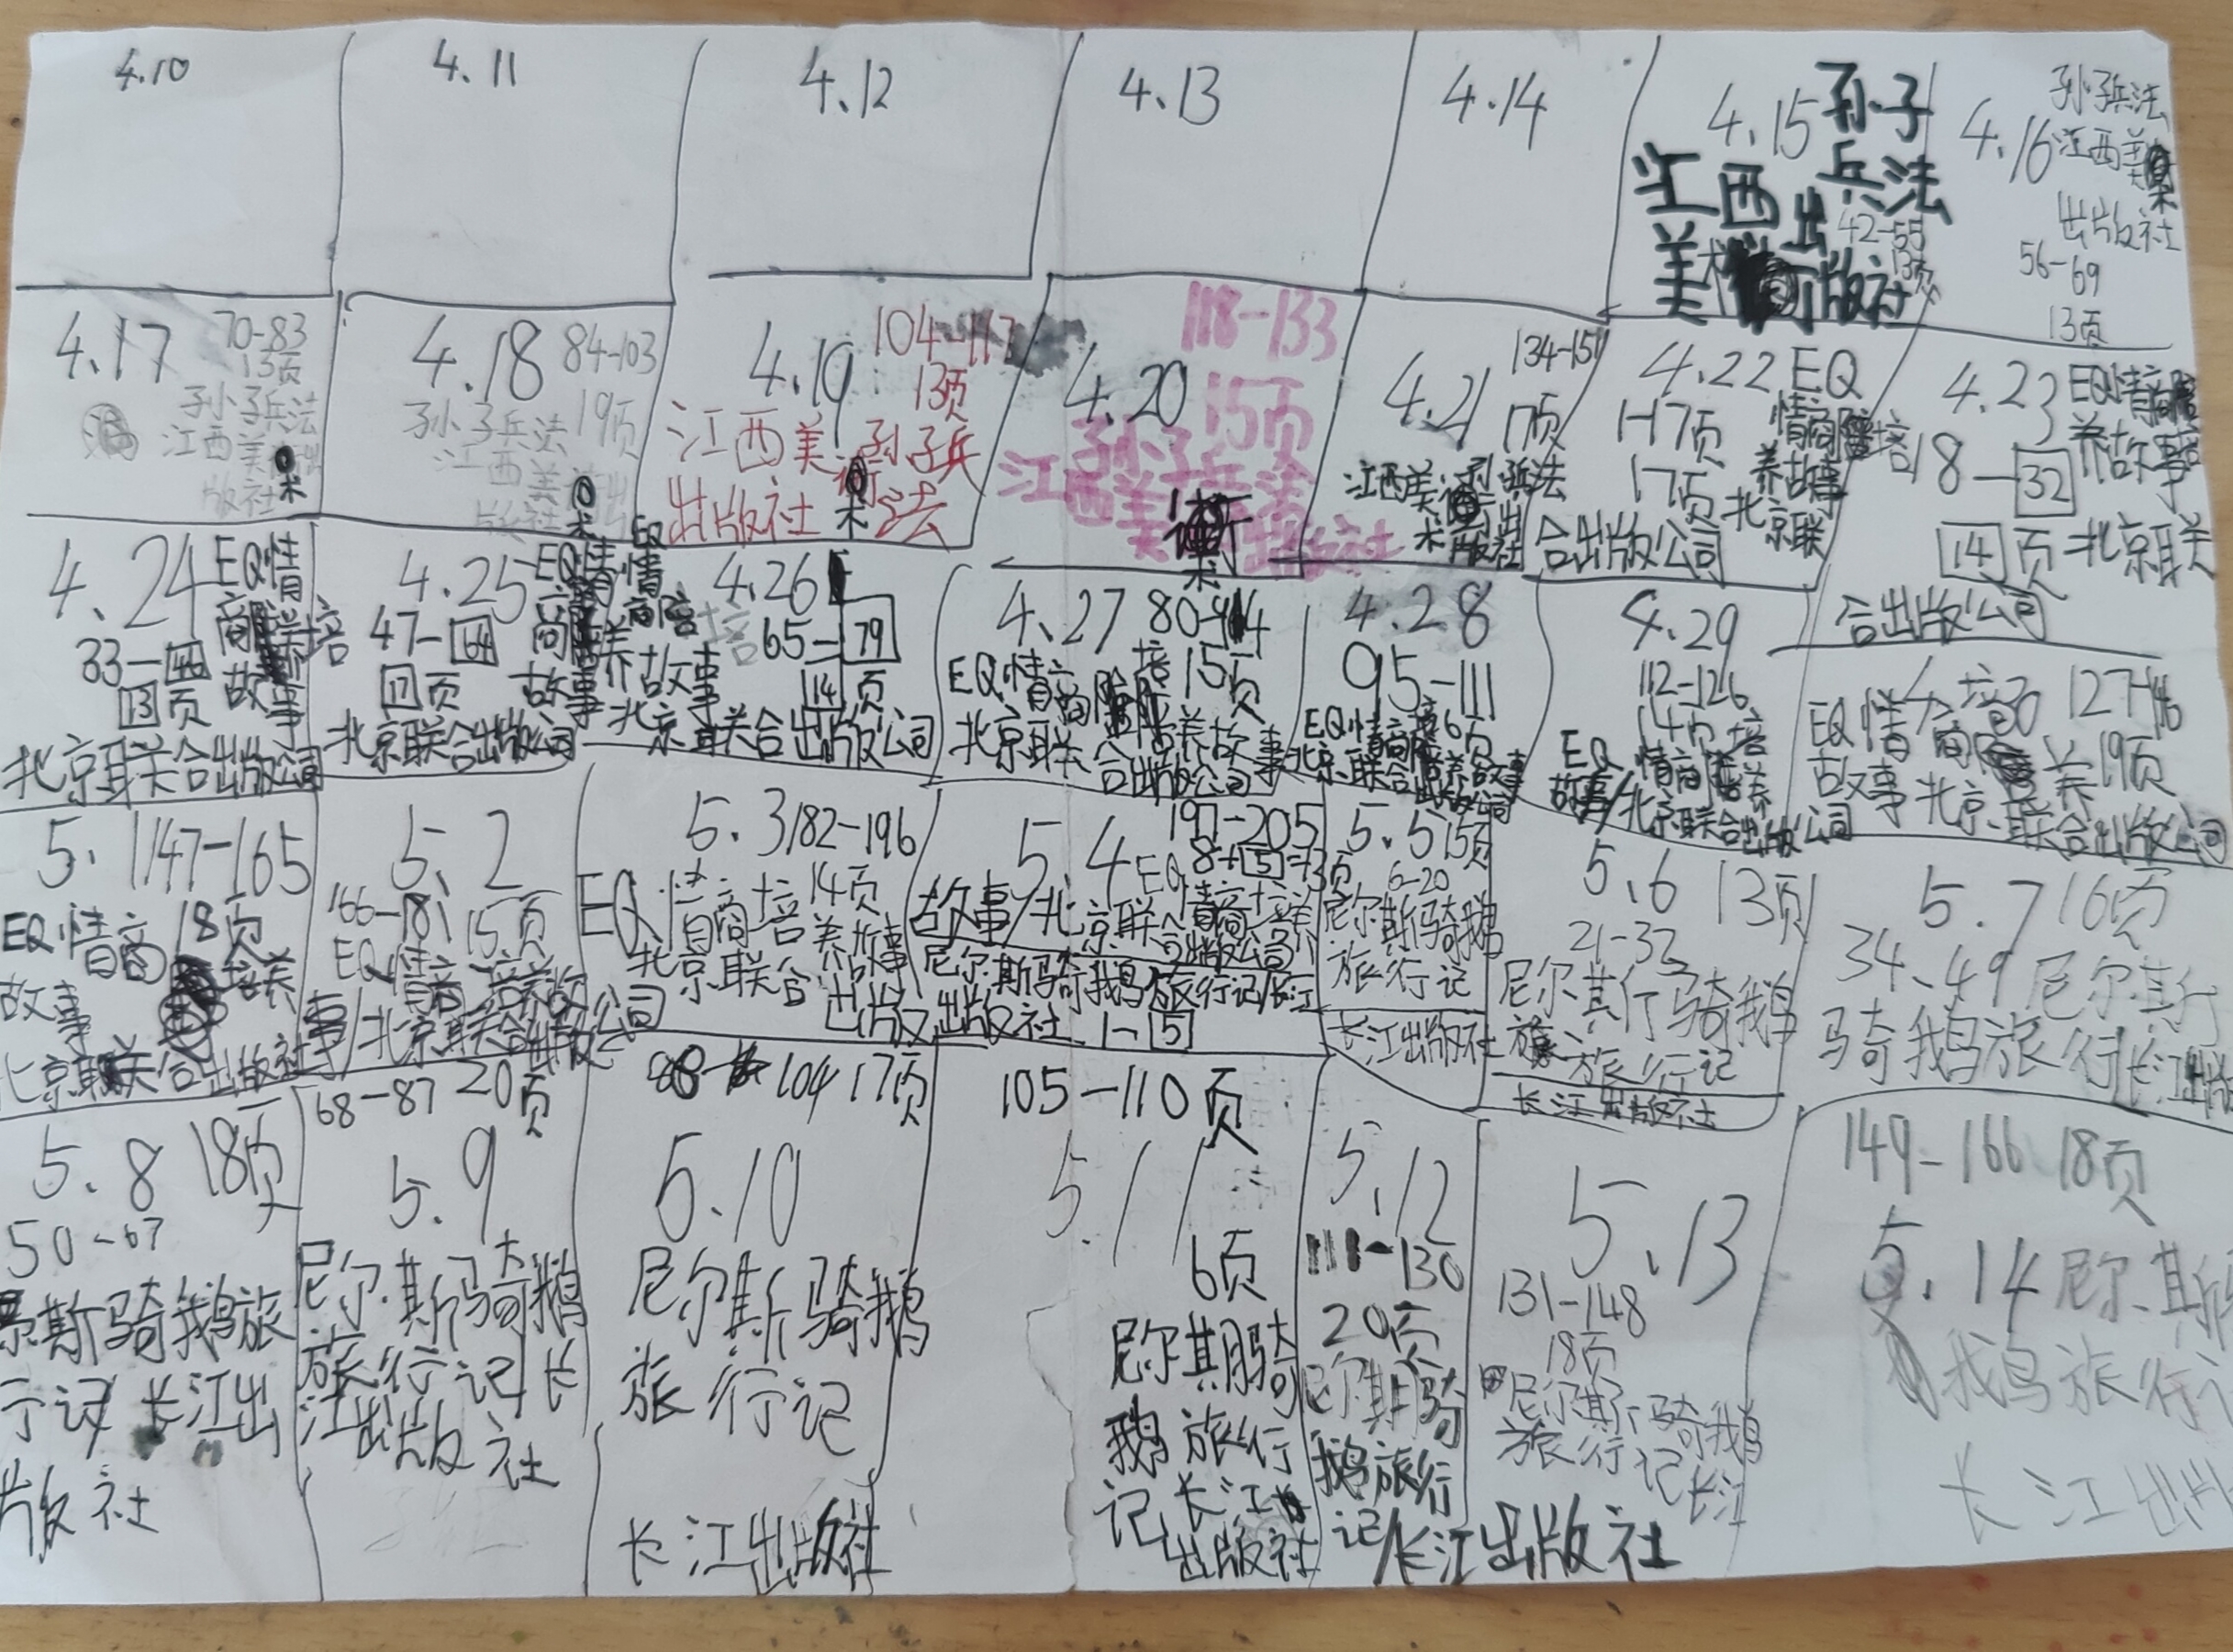 4.10
4.11
4.12
4.13
4.14
4.15 孙子
兵法
江西
美术出
版社
42-55
13页
4.16
孙子兵法
江西美术
出版社
56-69
13页
4.17
70-83
13页
孙子兵法
江西美术出
版社
4.18
84-103
19页
孙子兵法
江西美术出
版社
4.19
104-117
13页
江西美术 孙子兵
出版社 法
4.20
118-133
15页
孙子兵法
江西美术出版社
4.21
134-151
17页
江西美术 孙子兵法
出版社
4.22 EQ
1-17页 情商培
17页 养故事
北京联
合出版公司
4.23
EQ情商培
养故事
18-32
14页 北京联
合出版公司
4.24 EQ情
商培养
33-46 故事
13页
北京联合出版公司
4.25 EQ情
47-64 商培养
17页 故事
北京联合出版公司
4.26
EQ情
商培
养故事
65-79
14页
北京联合出版公司
4.27 80-94
15页
EQ情商培养故事
北京联合出版公司
4.28
95-111
16页
EQ情商培养故事
北京联合出版公司
4.29
112-126
14页
EQ情商培养
故事/北京联合出版公司
4.30 127-146
19页
EQ情商培养
故事 北京联合出版公司
5.1 147-165
18页
EQ情商培养
故事
北京联合出版社
5.2
166-181 15页
EQ情商培养故
事/北京联合出版公司
5.3 182-196
14页
EQ情商培养故事
北京联合出版
5.4 197-205
8+5=13页
EQ情商培养
故事/北京联合出版公司
尼尔斯骑鹅旅行记/长江
出版社 1-5
5.5 15页
6-20
尼尔斯骑鹅
旅行记
长江出版社
5.6 13页
21-32
尼尔斯骑鹅
旅行记
长江出版社
5.7 16页
34-49 尼尔斯
骑鹅旅行
长江出版
5.8 18页
50-67
斯骑鹅旅
行记 长江出
版社
68-87 20页
5.9
尼尔斯骑鹅
旅行记 长
江出版社
88-104 17页
5.10
尼尔斯骑鹅
旅行记
长江出版社
105-110页
5.11
6页
尼尔斯骑
鹅旅行
记 长江
出版社
5.12
111-130
20页
尼尔斯骑
鹅旅行
记/长江出版社
5.13
131-148
18页
尼尔斯骑鹅
旅行记 长江
149-166 18页
5.14 尼尔斯
鹅旅行
长江出版